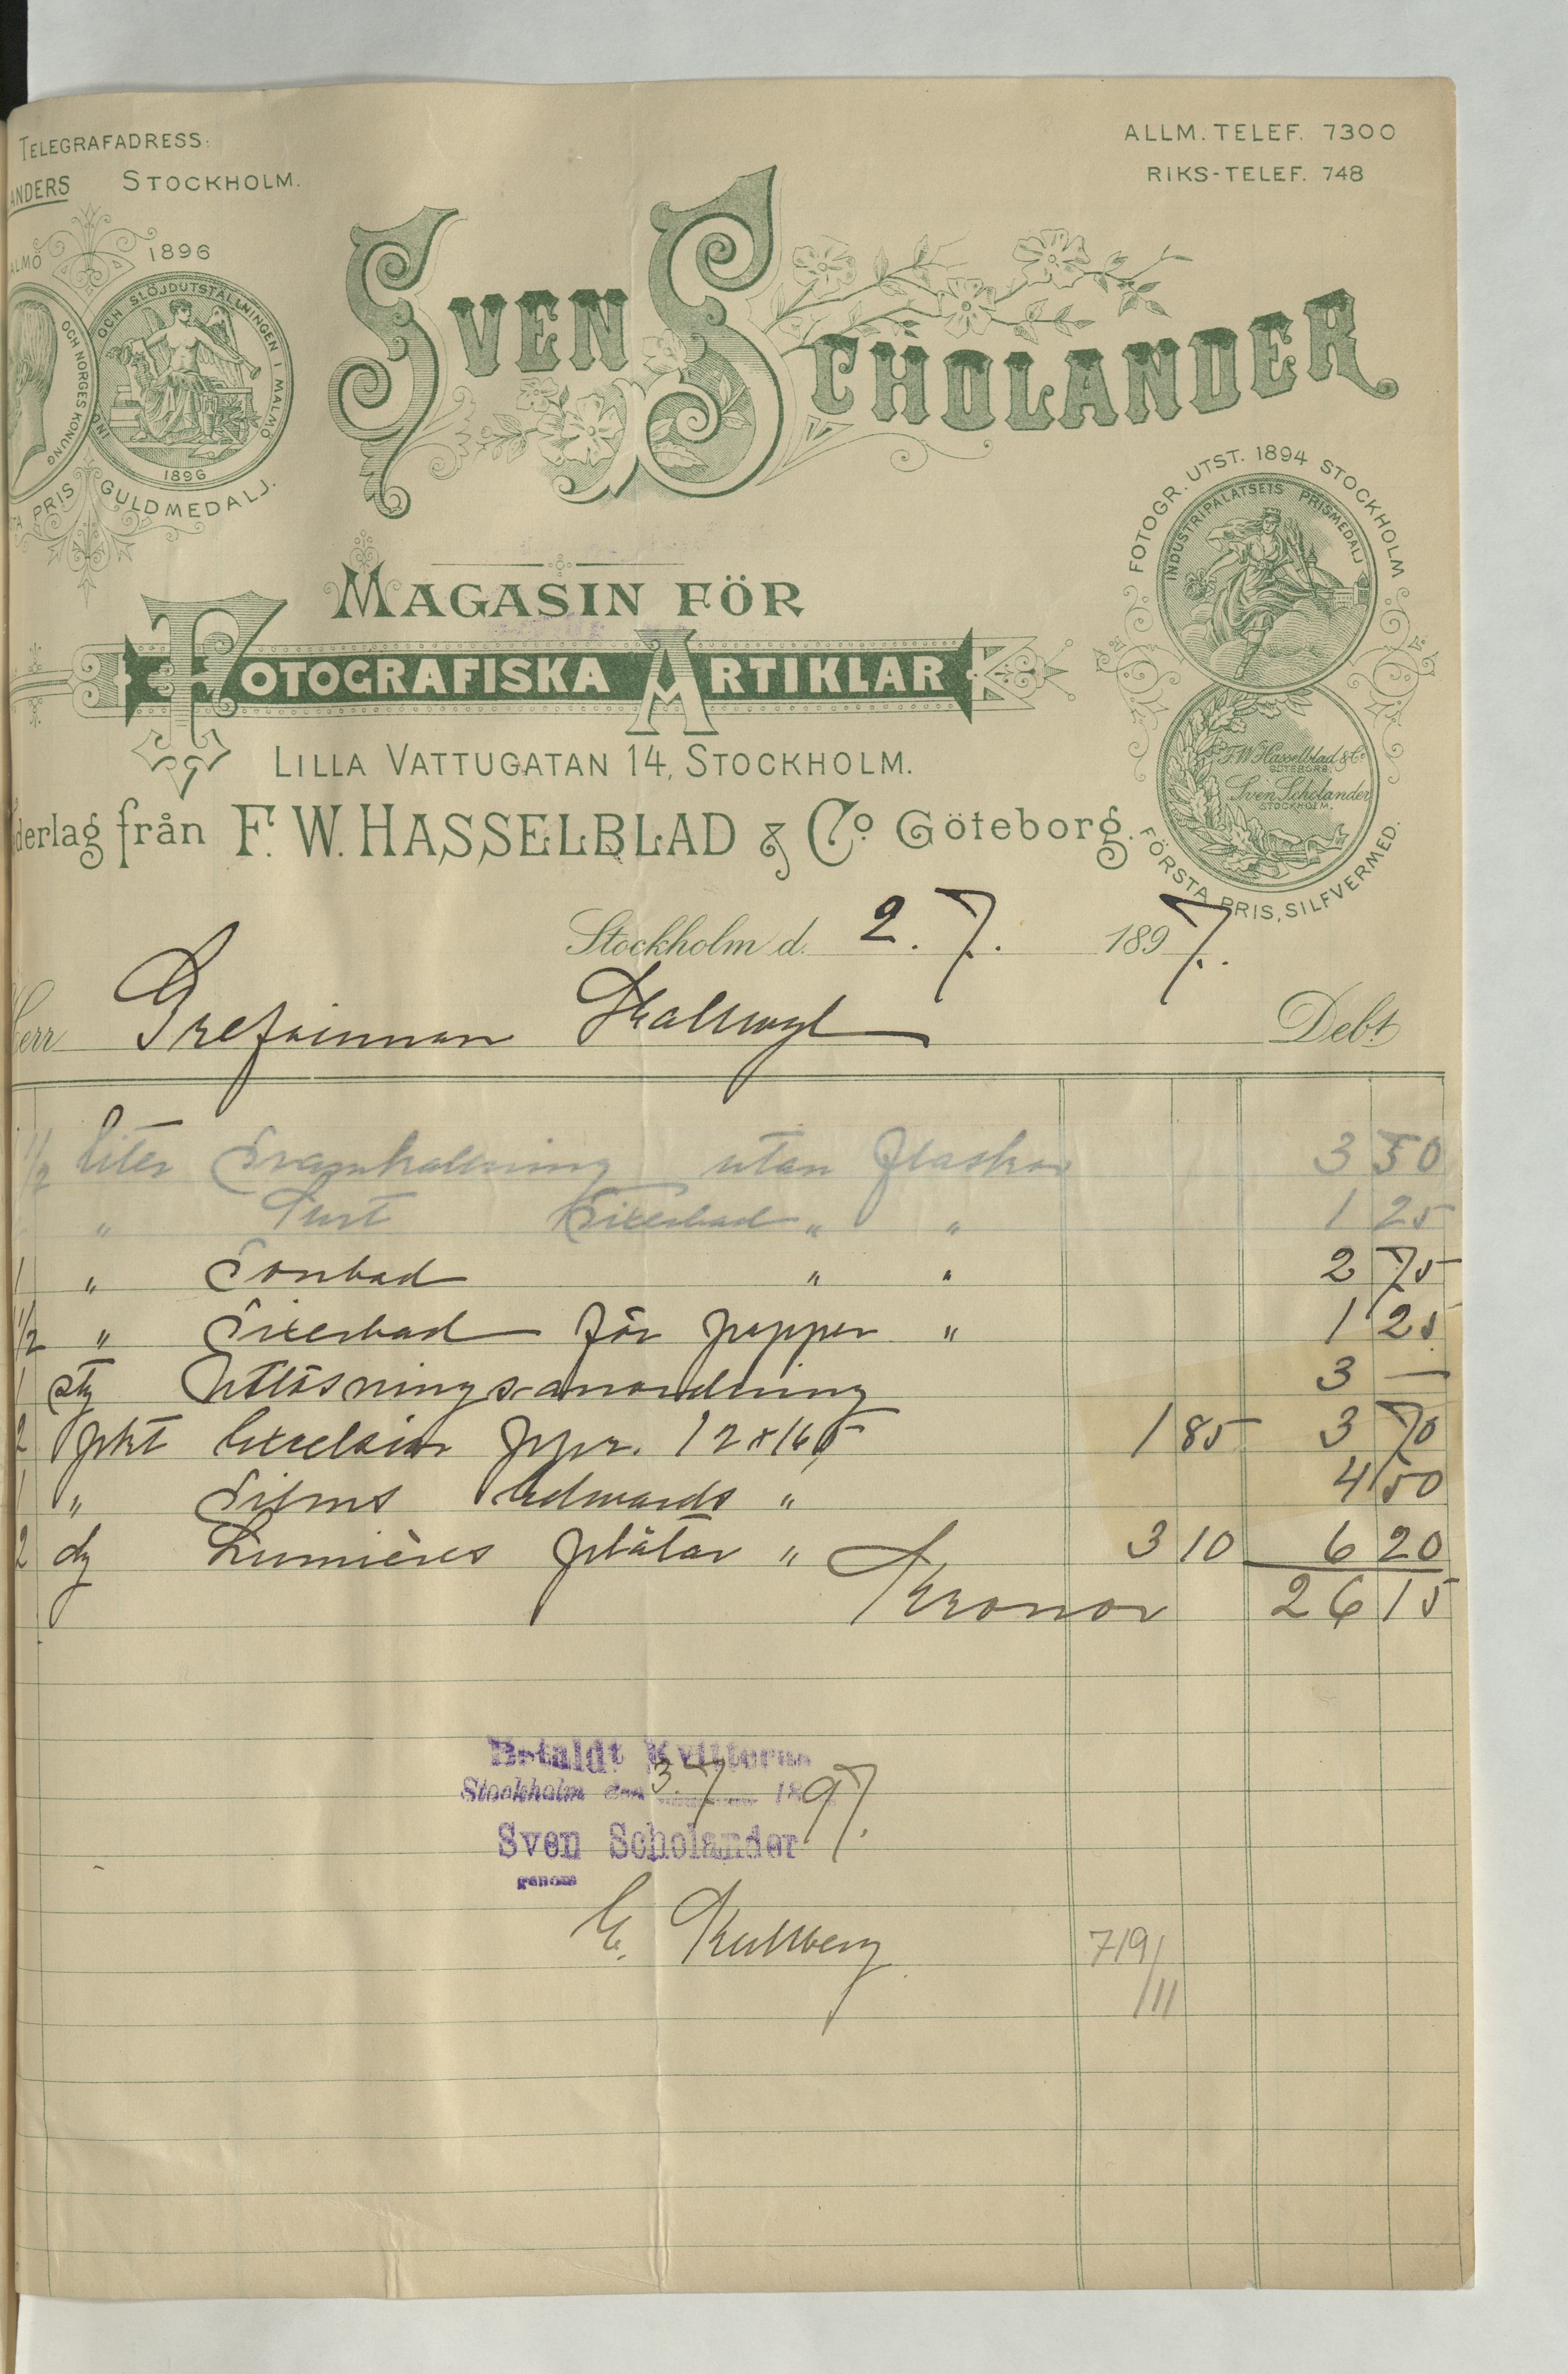 TELEGRAFADRESS:
ANDERS STOCKHOLM.
ALLM. TELEF. 7300
RIKS-TELEF. 748
ALMÖ 1896
OCH SLÖJDUTSTÄLLNINGEN I MALMÖ
OCH NORGES KONUNG
IND
1896
PRIS GULDMEDALJ.
SVEN SCHOLANDER
FOTOGR. UTST. 1894 STOCKHOLM
INDUSTRIPALATSETS PRISMEDALJ
MAGASIN FÖR
FOTOGRAFISKA ARTIKLAR
F.W. Hasselblad & Co
GÖTEBORG
Sven Scholander
STOCKHOLM.
FÖRSTA PRIS, SILFVERMED.
LILLA VATTUGATAN 14, STOCKHOLM.
derlag från F. W. HASSELBLAD & Co Göteborg.
Stockholm d. 2. 7. 1897.
Herr Grefvinnan Hallwyl Debt
1/2 liter Framkallning utan flaskor 3 50
" Surt Fixerbad " " 1 25
1 " Tonbad " " 2 75
1/2 " Fixerbad för papper " 1 25
1 st Utlösningsanordning 3 —
2 pkt Excelsior ppr. 12x16,5 1 85 3 70
1 " Films Edwards " 4 50
2 dz Lumières plåtar " 3 10 6 20
Kronor 26 15
Betaldt Kvitteras
Stockholm den 3. 7 1897.
Sven Scholander
genom
E. Kullberg
719/
/11